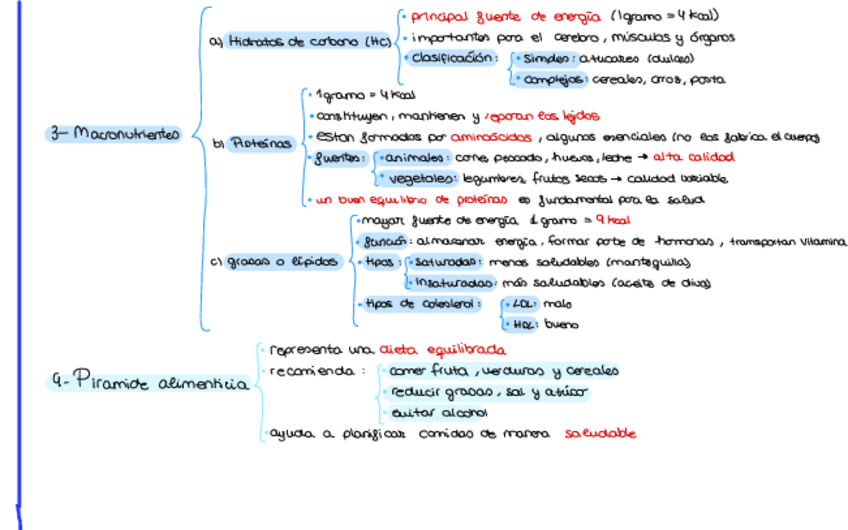 3- Macronutrientes
a) Hidratos de carbono (HC)
• principal fuente de energía (1gramo = 4 kcal)
• importantes para el cerebro, músculos y órganos
• clasificación:
• simples: azúcares (dulces)
• complejos: cereales, arroz, pasta
b) Proteínas
• 1gramo = 4 kcal
• constituyen, mantienen y reparan los tejidos
• están formadas por aminoácidos, algunos esenciales (no los fabrica el cuerpo)
• fuentes:
• animales: carne, pescado, huevos, leche → alta calidad
• vegetales: legumbres, frutos secos → calidad variable
• un buen equilibrio de proteínas es fundamental para la salud
c) grasas o lípidos
• mayor fuente de energía 1 gramo = 9 kcal
• función: almacenar energía, formar parte de hormonas, transportan vitamina
• tipos:
• saturadas: menos saludables (mantequilla)
• insaturadas: más saludables (aceite de oliva)
• tipos de colesterol:
• LDL: malo
• HDL: bueno
4- Piramide alimenticia
• representa una dieta equilibrada
• recomienda:
• comer fruta, verduras y cereales
• reducir grasas, sal y azúcar
• evitar alcohol
• ayuda a planificar comidas de manera saludable